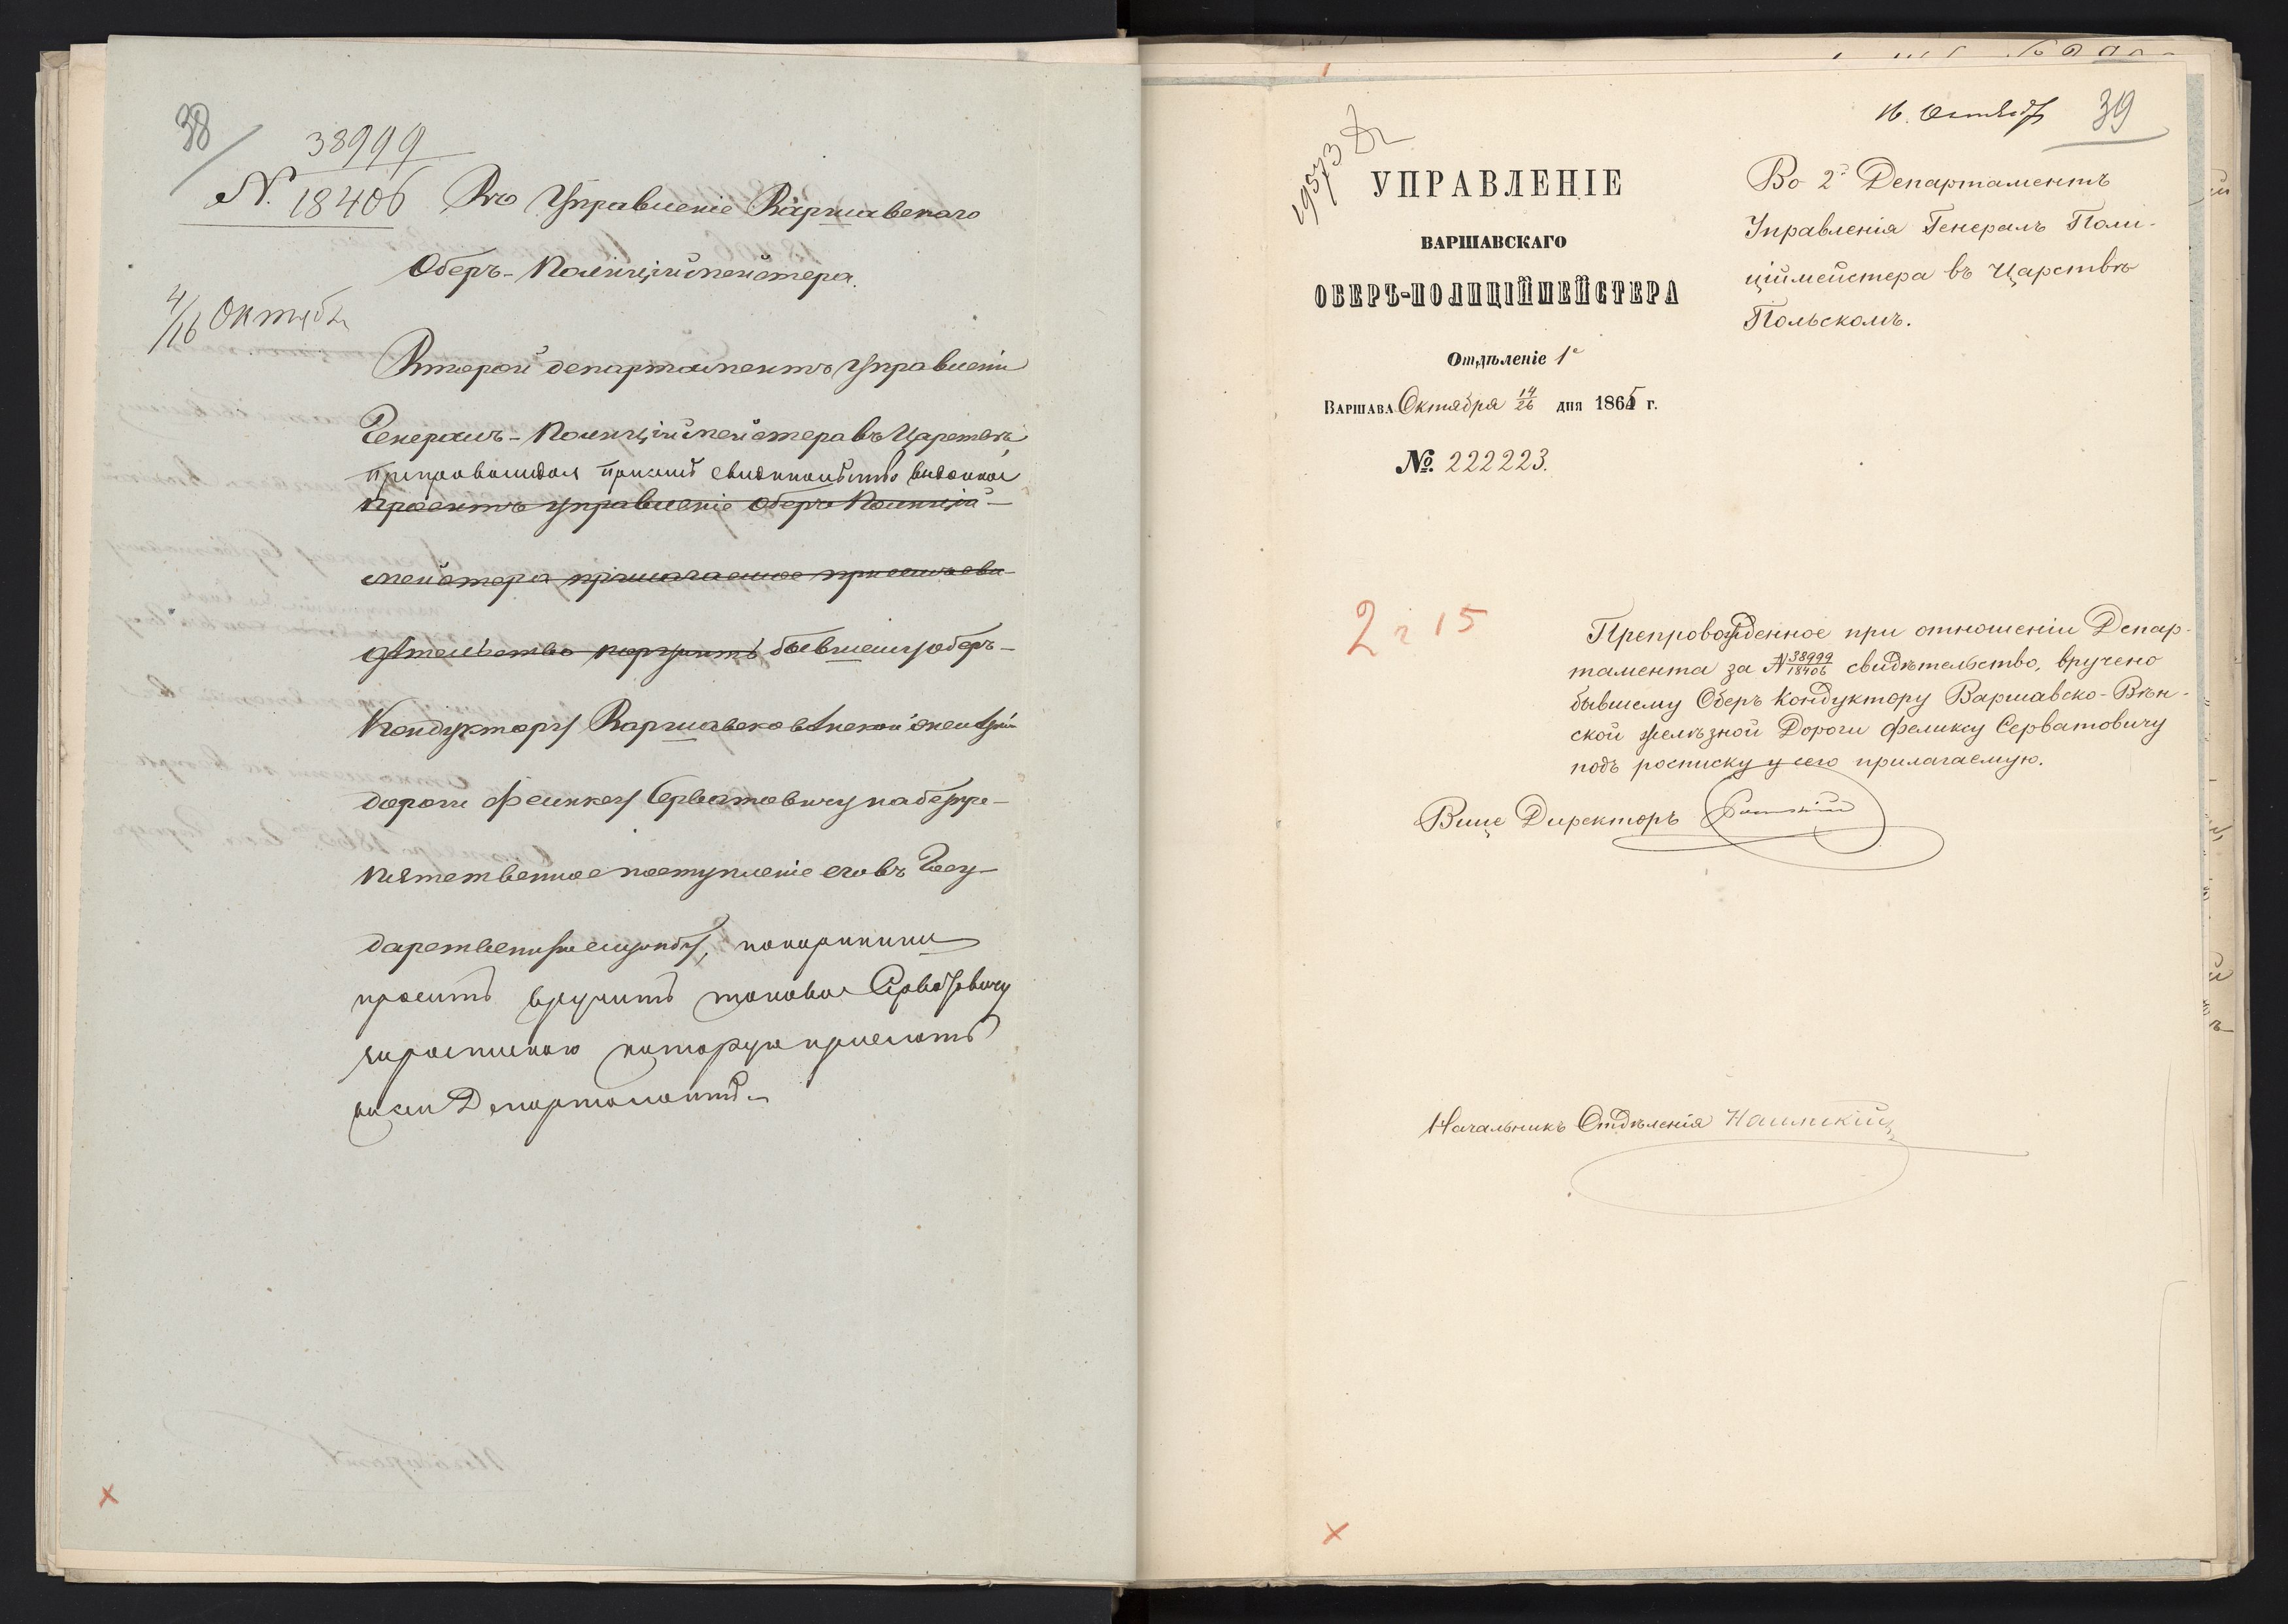 38
38999
N. 18406
Въ Управленіе Варшавскаго
Оберъ-Полиціймейстера.
4/16 Октяб
Второй департаментъ Управленія
Генералъ-Полиціймейстера въ Царствѣ,
препровождая при семъ свидѣтельство выданное
проситъ управленіе Оберъ Полицій-
мейстера прилагаемое при семъ сви-
дѣтельство вручить бывшему оберъ-
Кондуктору Варшавско вѣнской желѣзной
дороги Феликсу Серватовичу на безпре-
пятственное поступленіе его въ Госу-
дарственную службу, покорнѣйше
проситъ вручить таковое Серватовичу
роспиською которую прислать
въ сей Департаментъ.
16. Октяб
39
19573
УПРАВЛЕНІЕ
ВАРШАВСКАГО
ОБЕРЪ-ПОЛИЦІЙМЕЙСТЕРА
Отдѣленіе 1е
ВАРШАВА Октября 14/26 дня 1865 г.
№ 222223.
Во 2й Департаментъ
Управленія Генералъ Поли-
ціймейстера въ Царствѣ
Польскомъ.
2 г 15
Препровожденное при отношеніи Депар-
тамента за N 38999/18406 свидѣтельство, вручено
бывшему Оберъ Кондуктору Варшавско-Вѣн-
ской желѣзной Дороги Феликсу Серватовичу
подъ росписку у сего прилагаемую.
Вице Директоръ
Начальникъ Отдѣленія